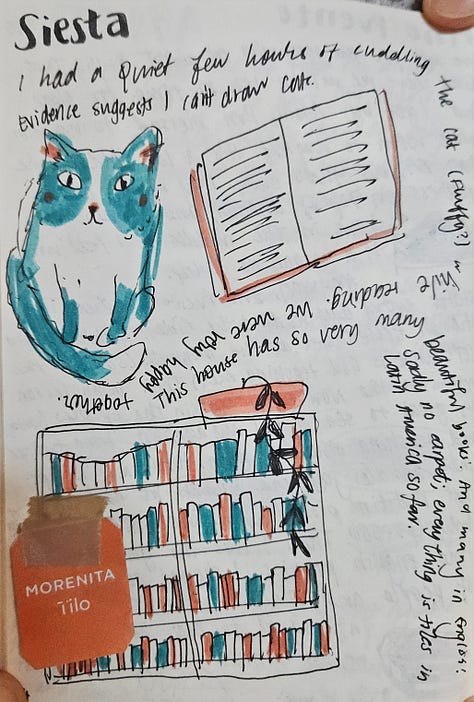 Siesta
I had a quiet few hours of cuddling
the cat (Fluffy?) while reading. We were very happy together.
Evidence suggests I can't draw cats.
This house has so very many
beautiful books. And many in English.
Sadly no carpet, everything is tiles in
Latin America so far.
MORENITA
Tilo